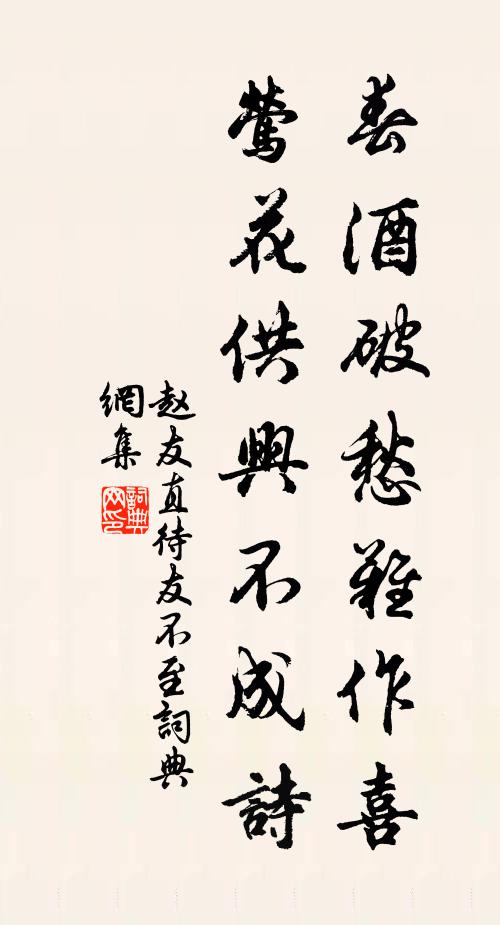 春酒破愁難作喜
鶯花供興不成詩
赵友直待友不至詞典
網集
詞典
网印